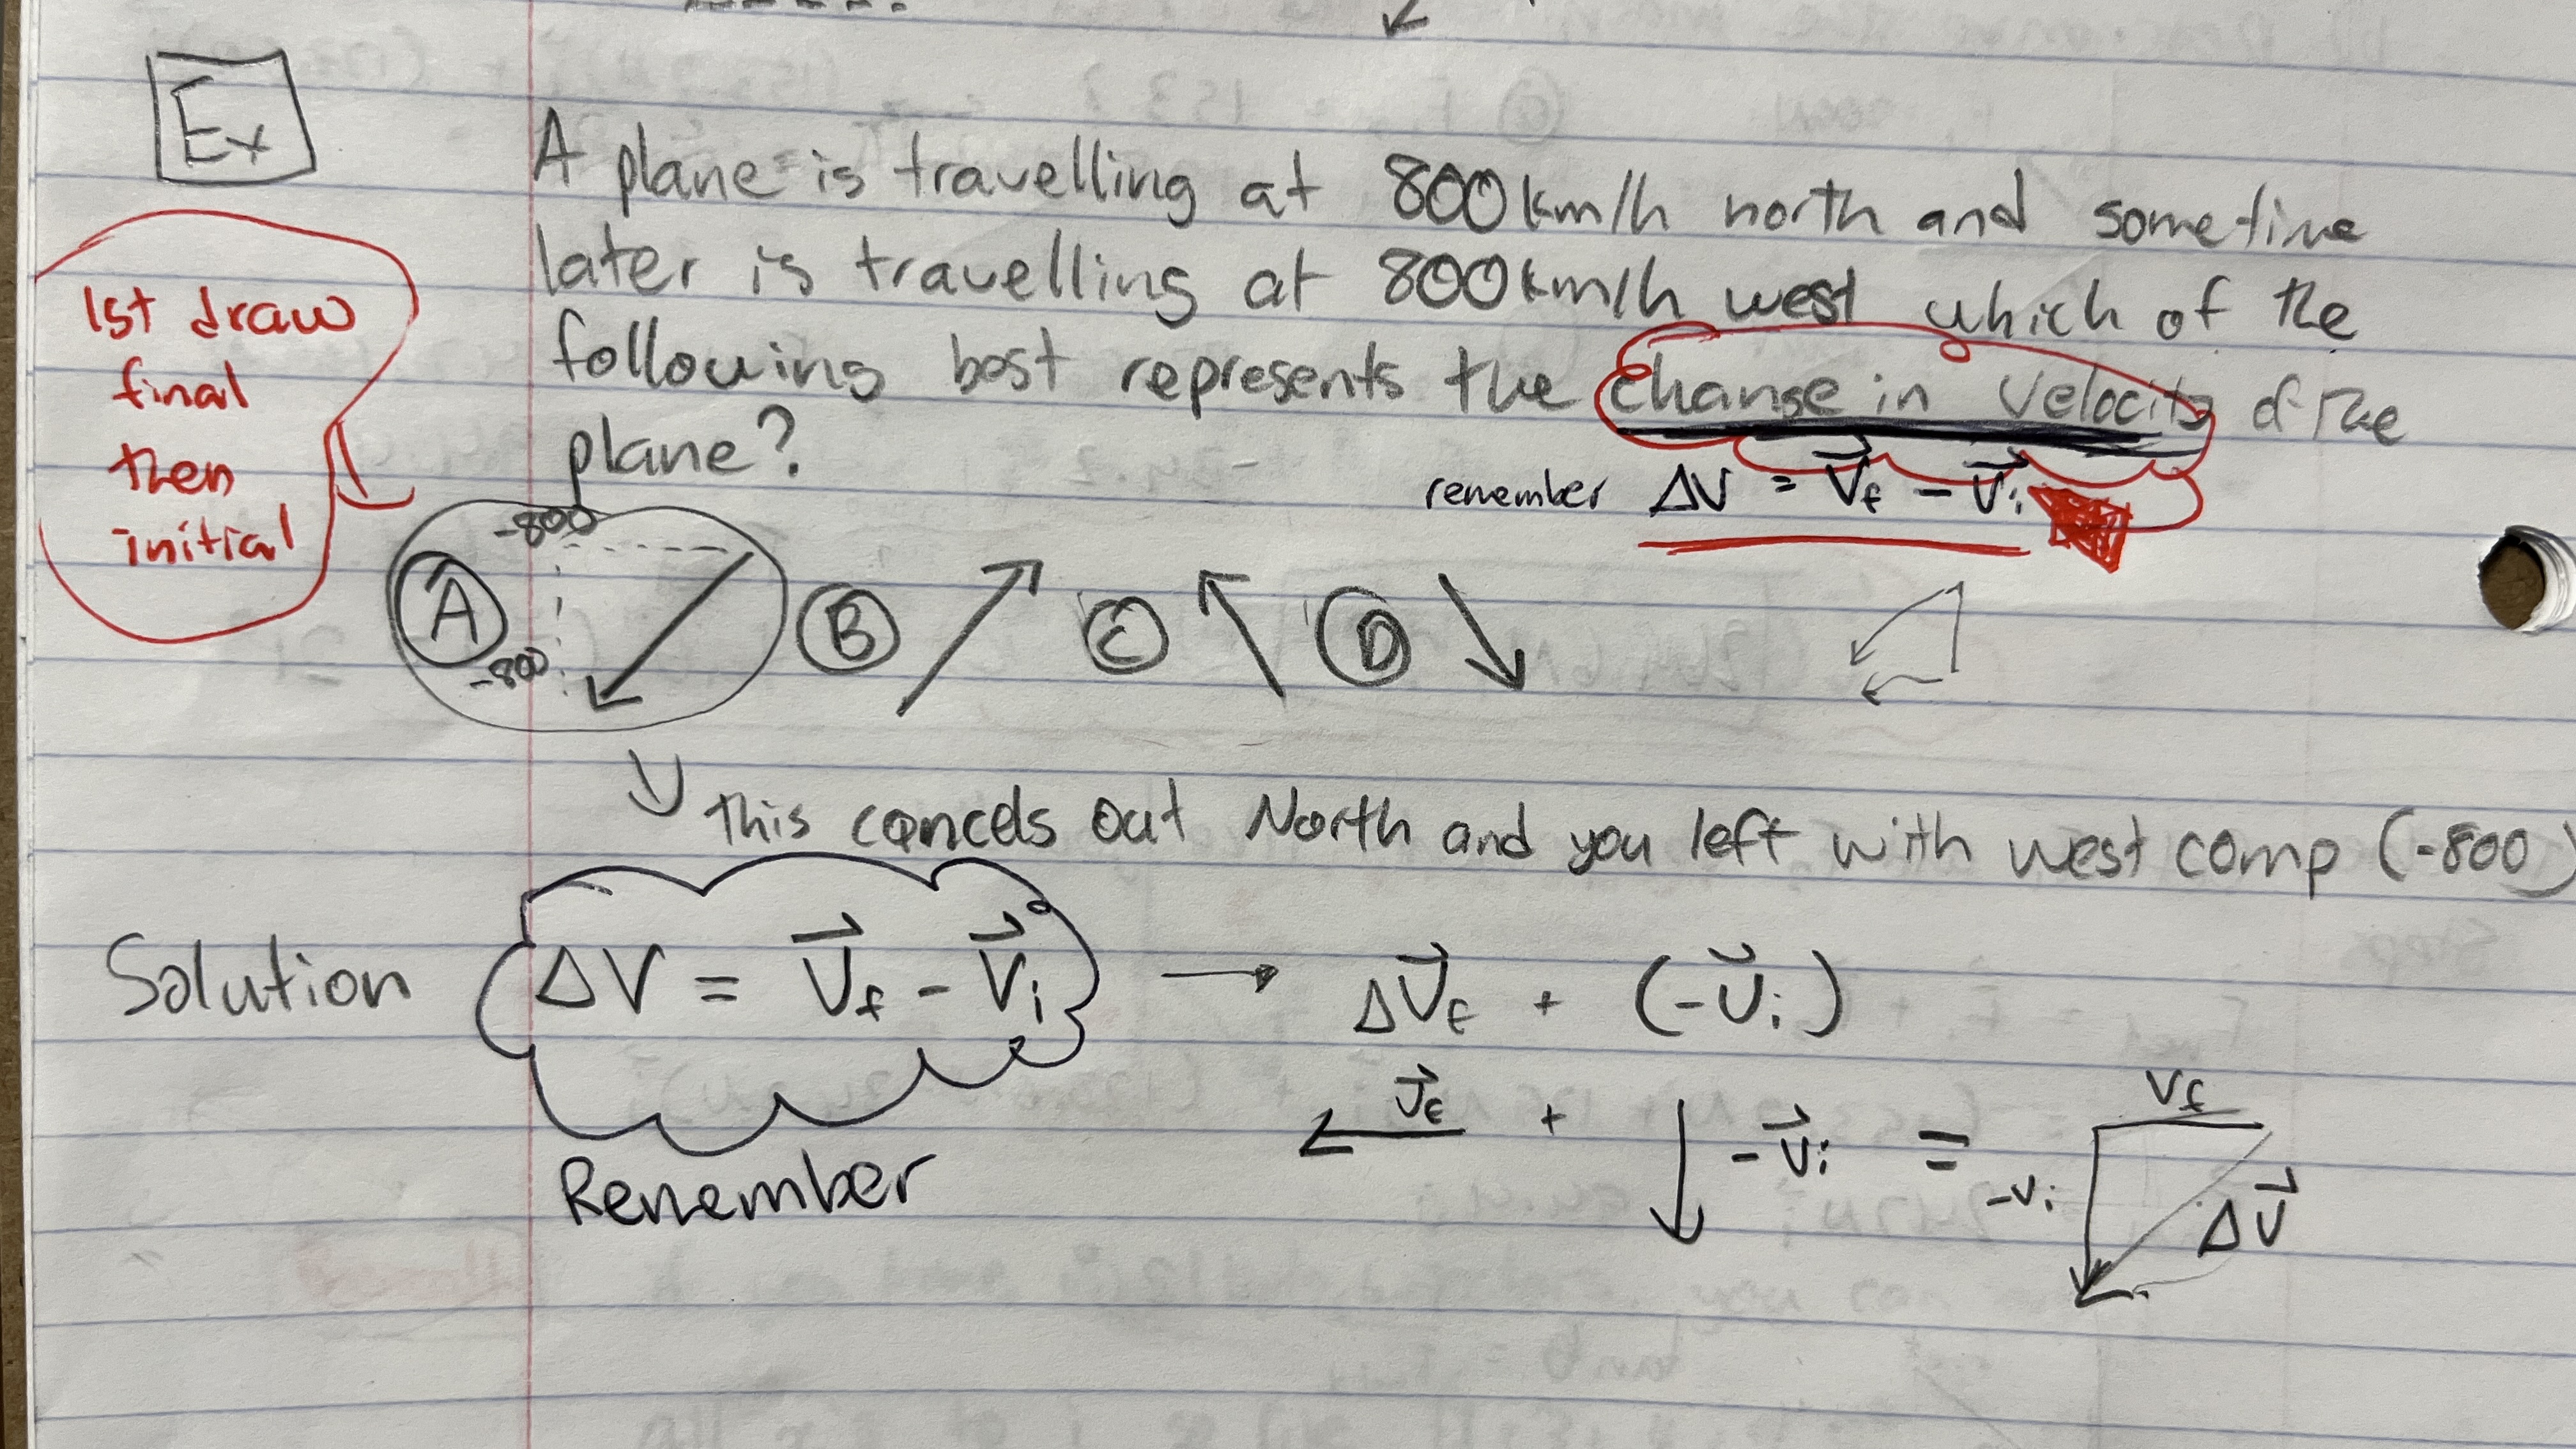 Ex
A plane is travelling at 800km/h north and sometime
later is travelling at 800km/h west which of the
following best represents the change in velocity of the
plane?
remember ΔV = V⃗f - V⃗i
1st draw
final
then
initial
-800
A B C D
-800
this cancels out North and you left with west comp (-800)
Solution ΔV = V⃗f - V⃗i → ΔV⃗f + (-V⃗i)
Remember
V⃗f + -V⃗i = -Vi Vf ΔV⃗